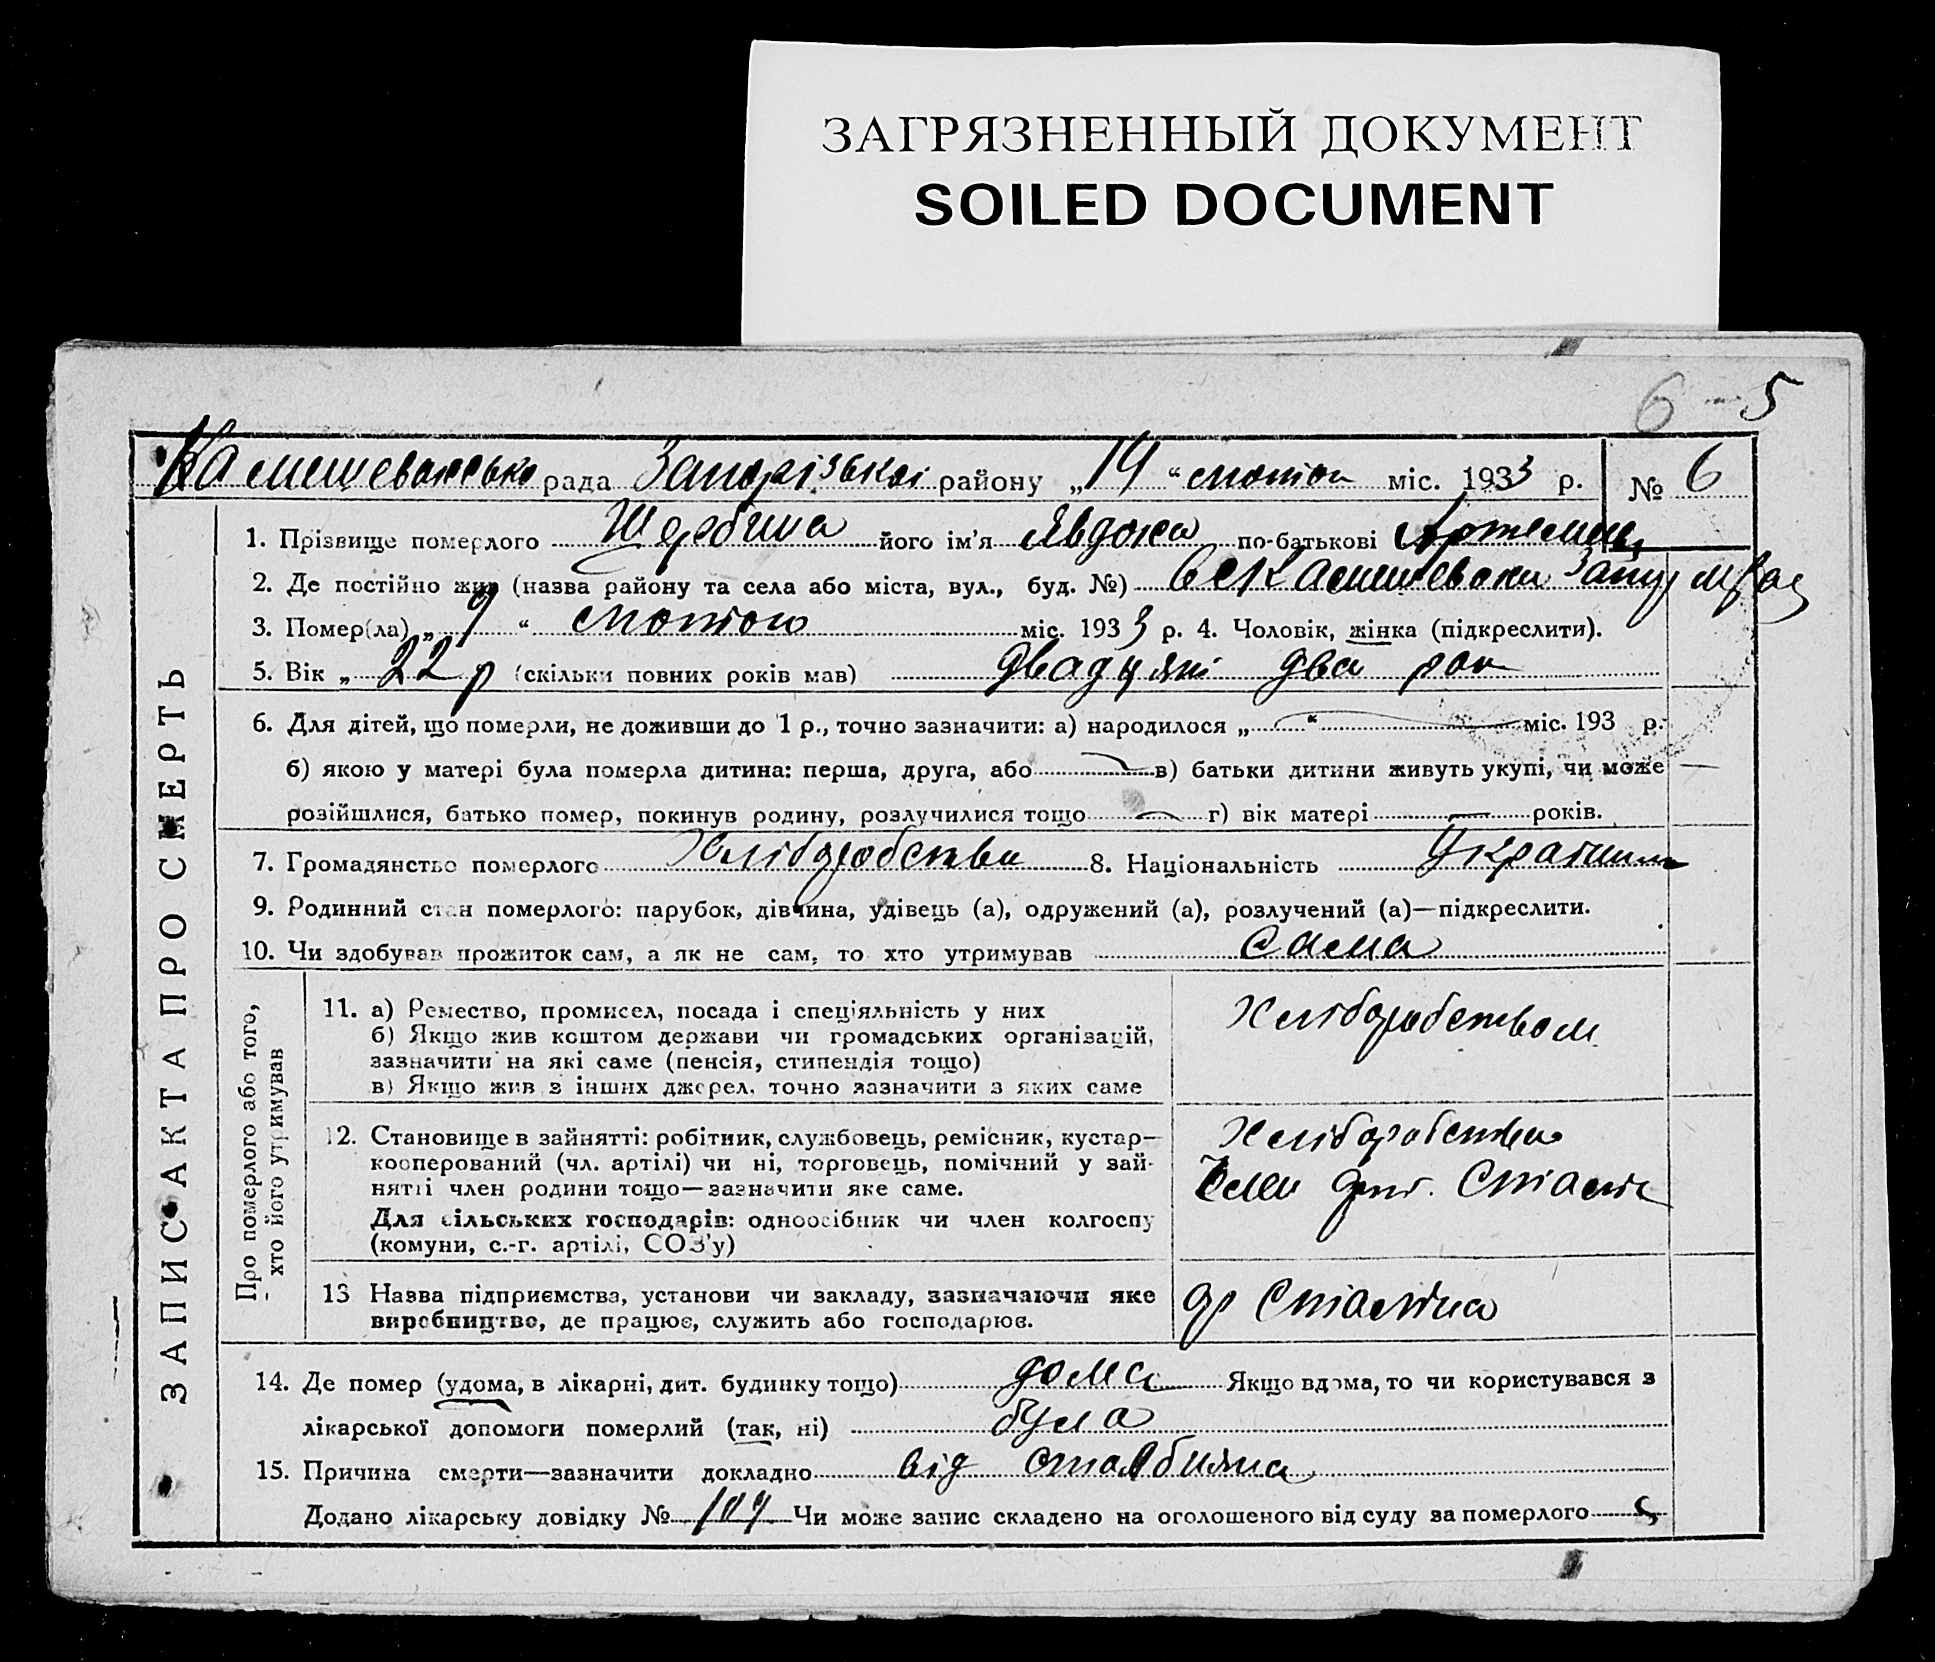 ЗАГРЯЗНЕННЫЙ ДОКУМЕНТ
SOILED DOCUMENT
6 5
рада Запорізької району „14“ лютого міс. 1933 р. № 6
1. Прізвище померлого Щербина його ім'я Явдоха по-батькові
2. Де постійно жив (назва району та села або міста, вул., буд. №)
3. Помер(ла) „9“ лютого міс. 1933 р. 4. Чоловік, жінка (підкреслити).
5. Вік „22 р (скільки повних років мав) двадцять два рок
6. Для дітей, що померли, не доживши до 1 р., точно зазначити: а) народилося „ “ міс. 193 р.
б) якою у матері була померла дитина: перша, друга, або в) батьки дитини живуть укупі, чи може
розійшлися, батько помер, покинув родину, розлучилися тощо г) вік матері років.
7. Громадянство померлого Хліборобства 8. Національність
9. Родинний стан померлого: парубок, дівчина, удівець (а), одружений (а), розлучений (а)—підкреслити.
10. Чи здобував прожиток сам, а як не сам, то хто утримував сама
ЗАПИС АКТА ПРО СМЕРТЬ
Про померлого або того,
хто його утримував
11. а) Ремество, промисел, посада і спеціяльність у них
б) Якщо жив коштом держави чи громадських організацій,
зазначити на які саме (пенсія, стипендія тощо)
в) Якщо жив з інших джерел, точно зазначити з яких саме
Хліборобством
12. Становище в зайнятті: робітник, службовець, ремісник, кустар—
кооперований (чл. артілі) чи ні, торговець, помічний у зай-
нятті член родини тощо—зазначити яке саме.
Для сільських господарів: одноосібник чи член колгоспу
(комуни, с.-г. артілі, СОЗ'у)
Хліборобство
13 Назва підприємства, установи чи закладу, зазначаючи яке
виробництво, де працює, служить або господарює.
ар Сталіна
14. Де помер (удома, в лікарні, дит. будинку тощо) дома Якщо вдома, то чи користувався з
лікарської допомоги померлий (так, ні) була
15. Причина смерти—зазначити докладно від
Додано лікарську довідку № 107 Чи може запис складено на оголошеного від суду за померлого